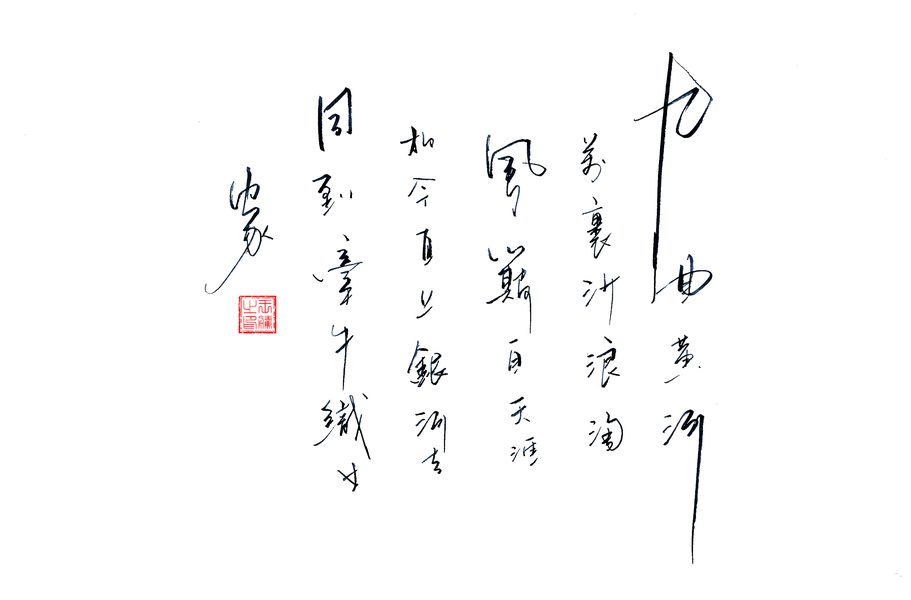 九曲黃河
萬裏沙浪淘
風簸自天涯
如今直上銀河去
同到牽牛織女
家